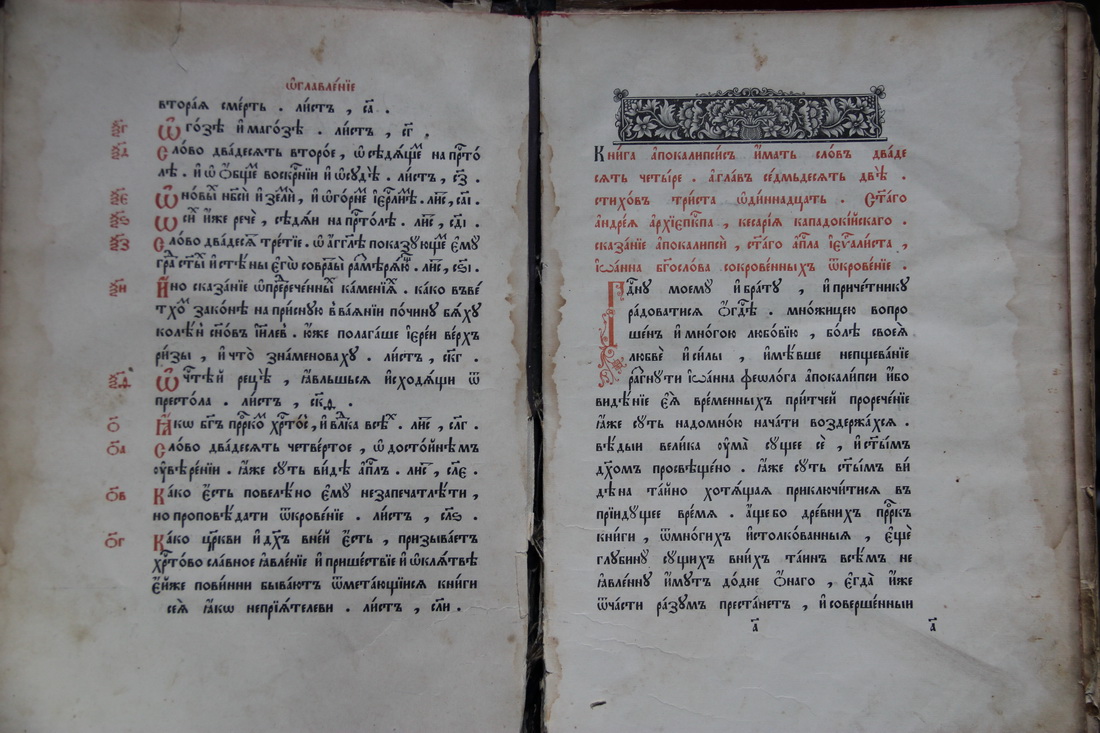 Ѡглавле́нїе
втора́ѧ сме́рть . ли́стъ , са҃ .
ѯ҃г Ѡ҆го́зѣ и҆маго́зѣ . ли́стъ , сг҃ .
ѯ҃д Сло́во два́десѧть второ́е , ѡ҆сѣдѧ́щемъ на прⷭ҇то
лѣ . и҆ ѡ҆ ѻ҆́бщемъ воскрⷭ҇нїи и҆ѡ҆сꙋдѣ̀ . ли́стъ , сз҃ .
ѯ҃є Ѡ҆но́вы́хъ нб҃сѝ и҆землѝ , и҆ ѡ҆го́рнемъ і҆ерⷭ҇ли́мѣ . ли́съ , саі҃ .
ѯ҃ѕ Ѡ҆си́хъ и҆́же речѐ , сѣдѧ́и на прⷭ҇то́лѣ . ли́съ , сді҃ .
ѯ҃з Сло́во два́десѧть тре́тїе . ѡ҆ а҆́гг҃лѣ показꙋ́ющемъ є҆мꙋ̀
гра́дъ ст҃ы́хъ и҆ стѣ́ны є҆гѡ̀ совраты̀ размѣрѧ́ющъ . ли́съ , сѕі҃ .
ѯ҃и И҆́но сказа́нїе ѡ҆преⷣрече́нныхъ ка́менїихъ . ка́ко въве́
тхомъ зако́нѣ на при́снꙋю въваѧ́нїи почи́нꙋ бѧ́хꙋ
колѣ́нъ сн҃о́въ і҆и҃левъ . ю҆́же полага́ше і҆ере́и ве́рхъ
ри́зы , и҆ что̀ знаменова́хꙋ . ли́стъ , скг҃ .
ѯ҃ѳ Ѡ҆ чⷭ҇тѣ́й рецѣ̀ , ꙗ҆́вльшьсѧ и҆сходѧ́щи ѿ
престо́ла . ли́стъ , скд҃ .
ѻ҃ Ꙗ҆́кѡ бг҃ъ прⷪ҇ро́кѡмъ хрⷭ҇то́съ , и҆ влⷣка всѣ́хъ . ли́съ , слг҃ .
ѻ҃а Сло́во два́десѧть четве́ртое , ѡ҆ досто́йнѣмъ
ѹ҆вѣ́ренїи . ꙗ҆́же сꙋ́ть ви́дѣ а҆пⷭ҇лъ . ли́съ , слє҃ .
ѻ҃в Ка́ко є҆́сть повелѣ́но є҆мꙋ̀ незапечатлѣ́ти ,
но проповѣ́дати ѿкрове́нїе . ли́стъ , слѕ҃ .
ѻ҃г Ка́ко цр҃кви и҆ дх҃ъ вне́й є҆́сть , призыва́етъ
хрⷭ҇то́во сла́вное ꙗ҆вле́нїе и҆ прише́ствїе и҆ ѡ҆клѧ́твѣ
є҆́йже пови́нни быва́ютъ ѿмета́ющїисѧ кни́ги
сеѧ̀ ꙗ҆́кѡ непрїѧ́телеви . ли́стъ , сли҃ .
Кни́га а҆пока́липсисъ и҆́мать сло́въ два́де
сѧть четы́ре . а҆гла́въ се́дмьдесѧтъ двѣ̀ .
стихо́въ три́ста ѡ҆ди́ннадцать . Ст҃а́го
а҆ндре́ѧ а҆рхїепⷭ҇кпа , кесарі́ѧ кападокі́йскаго .
сказа́нїе а҆пока́липсѝ , ст҃а́го а҆пⷭ҇ла і҆еѵⷢ҇ли́ста ,
і҆ѡа́нна бг҃осло́ва сокрове́нныхъ ѿкрове́нїе .
Гдⷭ҇нꙋ моемꙋ̀ и҆ бра́тꙋ , и҆ приче́тникꙋ
ра́доватисѧ ѻ҆ гдⷭ҇ѣ . мно́жицею вопро
ше́нъ и҆ мно́гою любо́вїю , бо́лѣ своеѧ̀
любвѐ и҆ си́лы , и҆мѣ́вше непщева́нїе
ра́згнꙋти і҆ѡа́нна феѡ́лога а҆пока́липси и҆̀бо
видѣ́нїе є҆ѧ̀ вре́менныхъ при́тчей прорече́нїе
ꙗ҆́же сꙋ́ть надомно́ю нача́ти воздержа́хсѧ .
вѣ́дыи вели́ка ѹ҆ма̀ сꙋ́щее сѐ , и҆ ст҃ы́мъ
дх҃омъ просвѣще́но . ꙗ҆́же сꙋ́ть ст҃ы́мъ ви́
дѣна та́йно хотѧ́щаѧ приключи́тисѧ въ
прїи́дꙋщее вре́мѧ . а҆́ще бо дре́внихъ прⷪ҇ркъ
кни́ги , ѿмно́гихъ и҆столко́ванныѧ , є҆щѐ
глꙋбинꙋ̀ сꙋ́щихъ вни́хъ та́инъ всѣ́мъ не
ꙗ҆вле́ннꙋ и҆́мꙋтъ до́дне ѻ҆́наго , є҆гда̀ и҆́же
ѿча́сти ра́зꙋмъ преста́нетъ , и҆ соверше́нныи
а҃ а҃